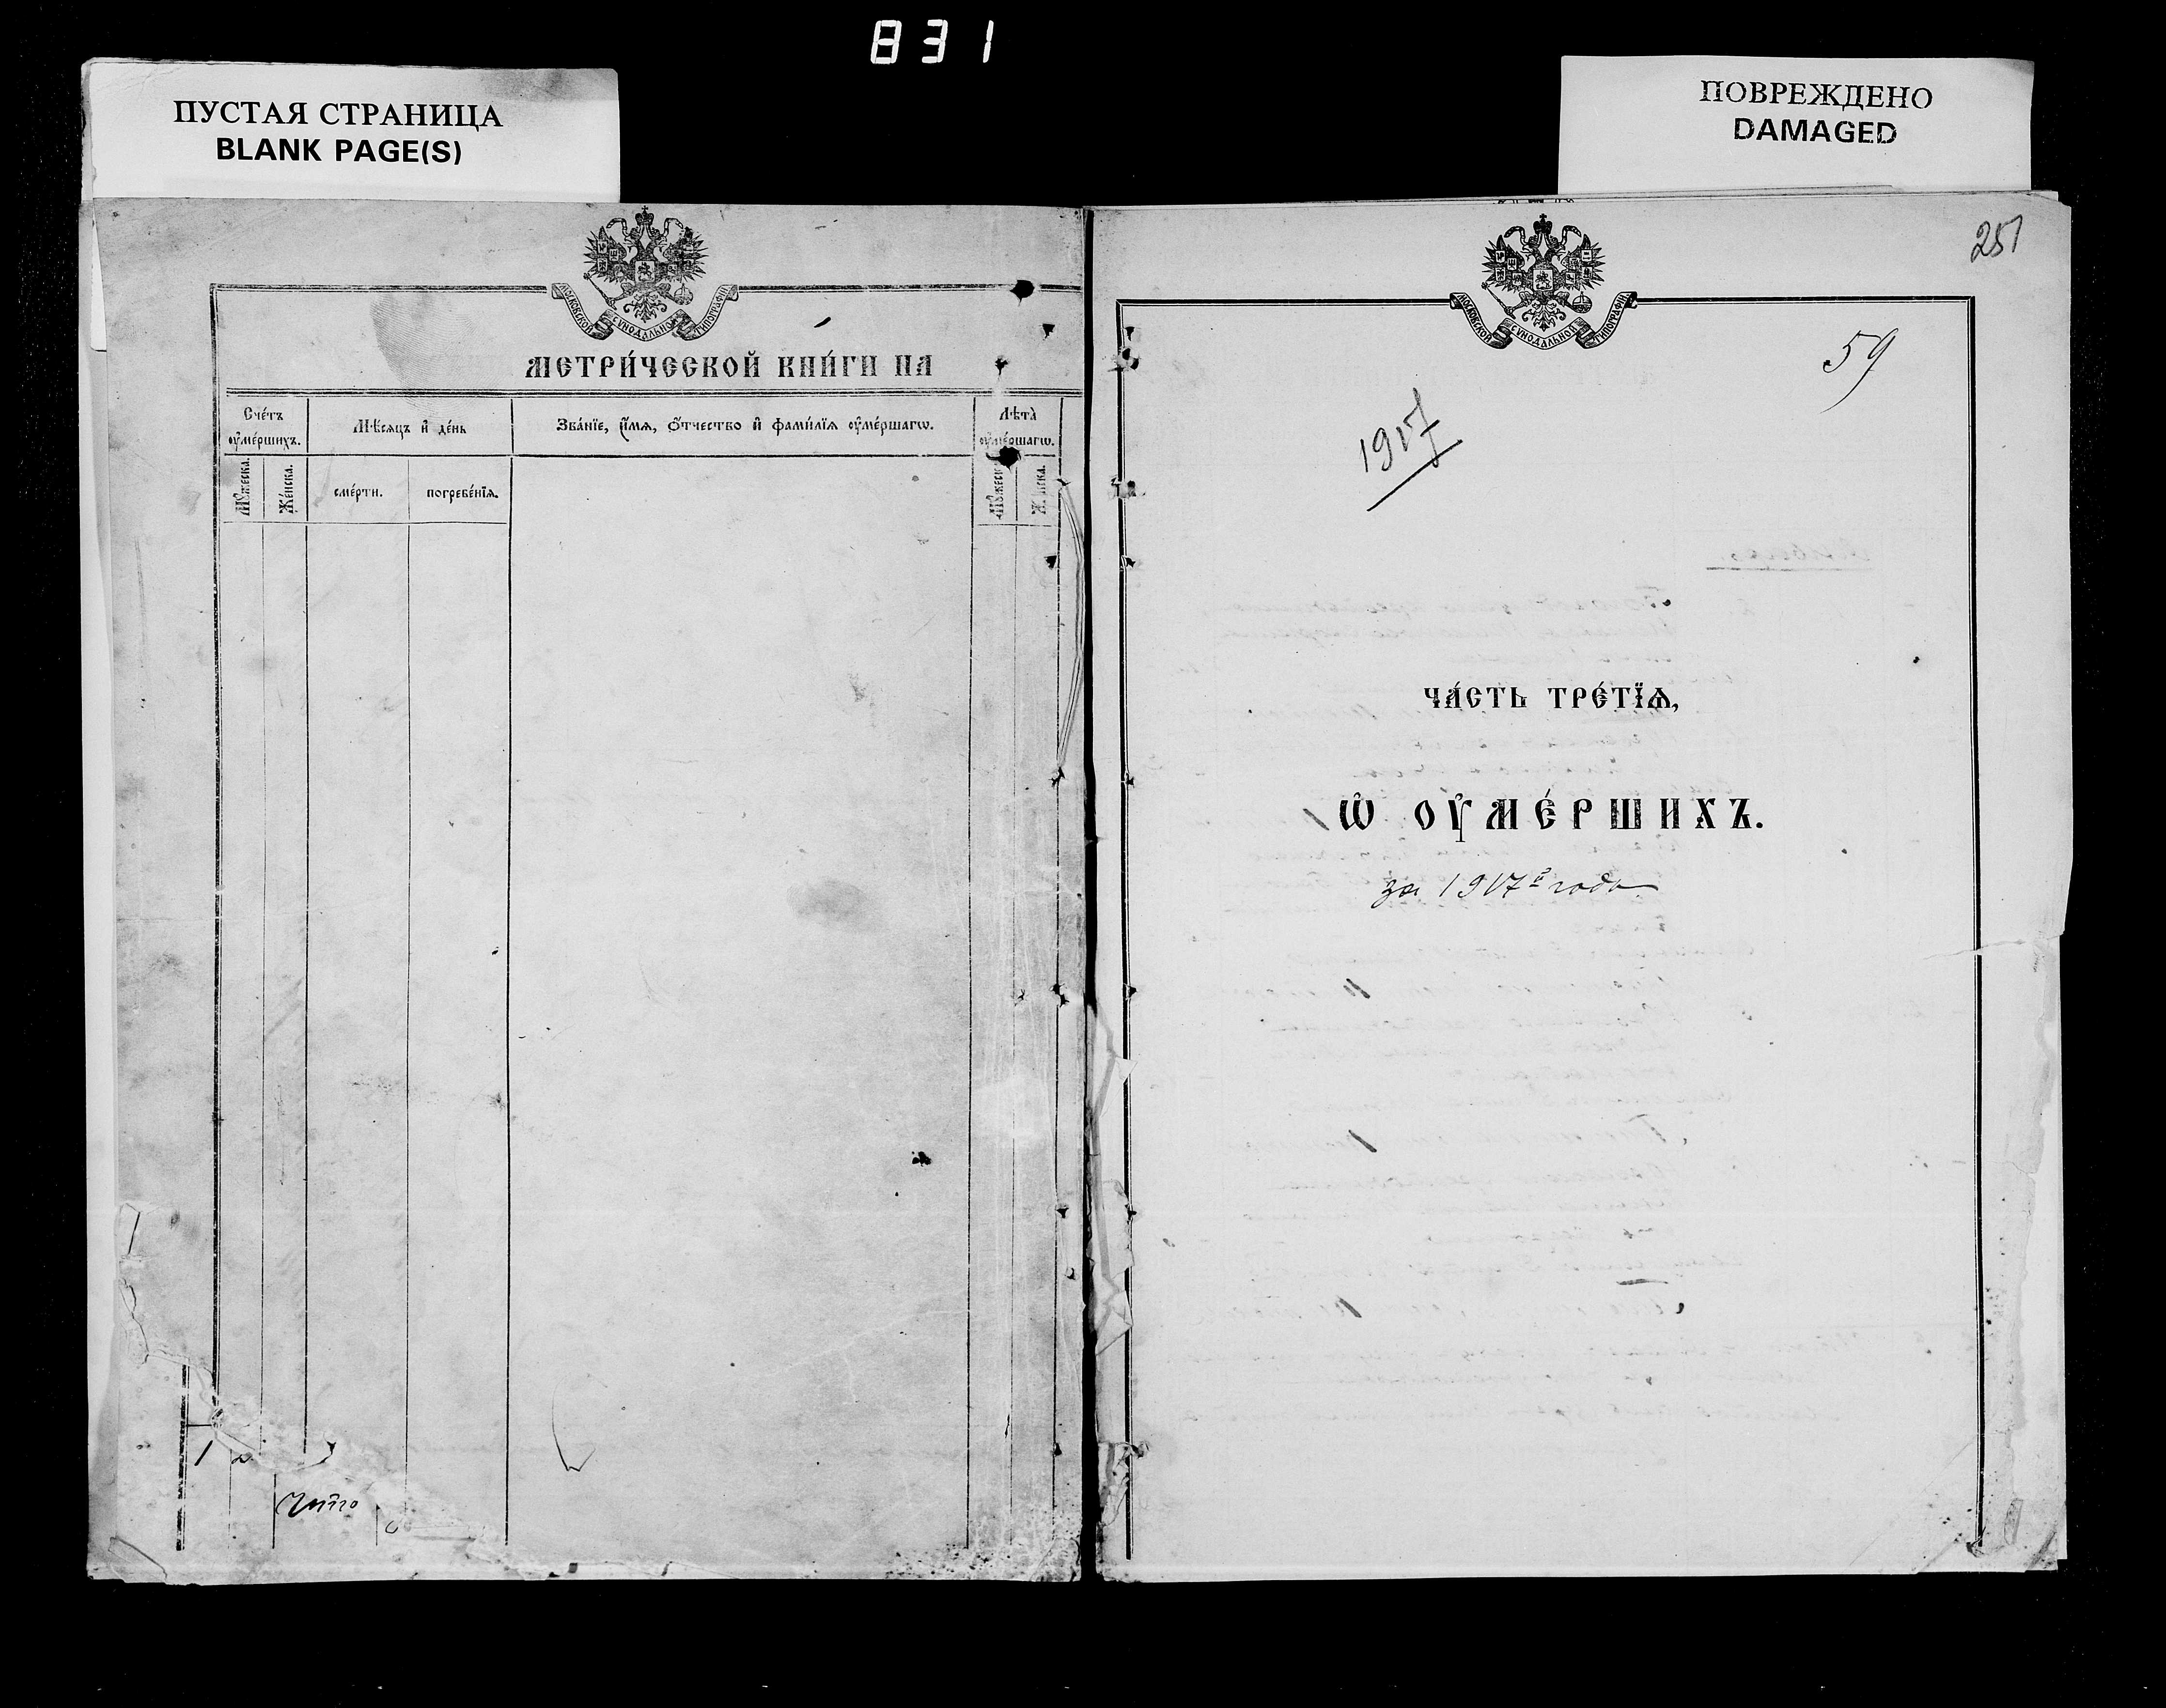 831
ПУСТАЯ СТРАНИЦА
BLANK PAGE(S)
ПОВРЕЖДЕНО
DAMAGED
МОСКОВСКОЙ СѴНОДАЛЬНОЙ ТИПОГРАФІИ
МЕТРИ́ЧЕСКОЙ КНИ́ГИ НА
Сче́тъ ᲂу҆ме́ршихъ.
Мѣ́сяцъ и҆ де́нь
Зва́нїе, и҆́мѧ, ѻ҆́тчество и҆ фами́лїѧ ᲂу҆ме́ршагѡ.
Лѣ̀та ᲂу҆ме́ршагѡ.
Мꙋ́жеска.
Же́нска.
сме́рти.
погребе́нїѧ.
Мꙋ́жеск
Ж нска.
1 2
Итого
МОСКОВСКОЙ СѴНОДАЛЬНОЙ ТИПОГРАФІИ
251
59
1917
ЧА́СТЬ ТРЕ́ТЇѦ,
Ѡ҆ ОУ҆МЕ́РШИХЪ.
за 1917й годъ